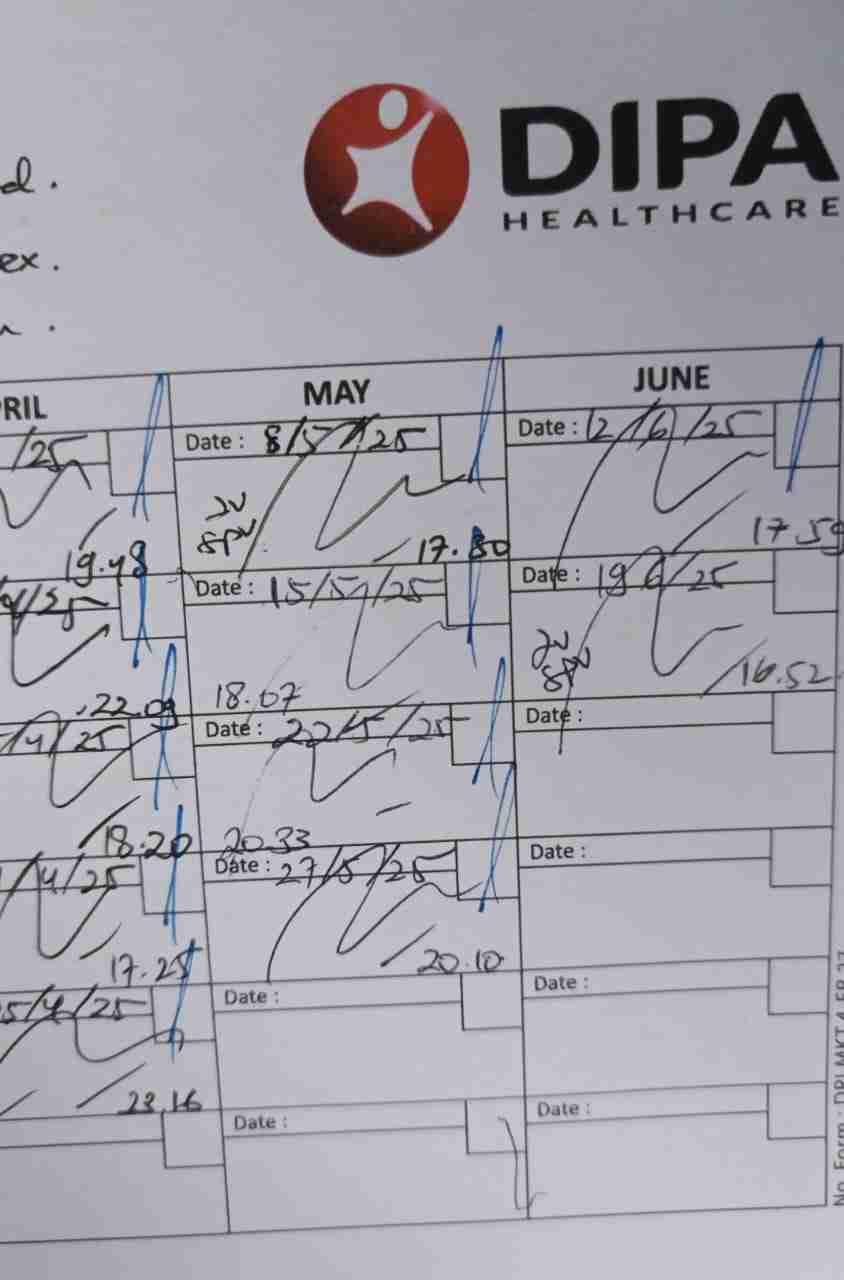 d.
DIPA
HEALTHCARE
ex.
PRIL
MAY
JUNE
/25
Date : 8/5/25
Date : 12/6/25
19.48
17.30
17.59
4/25
Date : 15/5/25
Date : 19 6/25
22.09
18.07
16.52
/4/25
Date : 22/5/25
Date :
18.20
20.33
/4/25
Date : 27/5/25
Date :
17.25
20.10
5/4/25
Date :
Date :
23.16
Date :
Date :